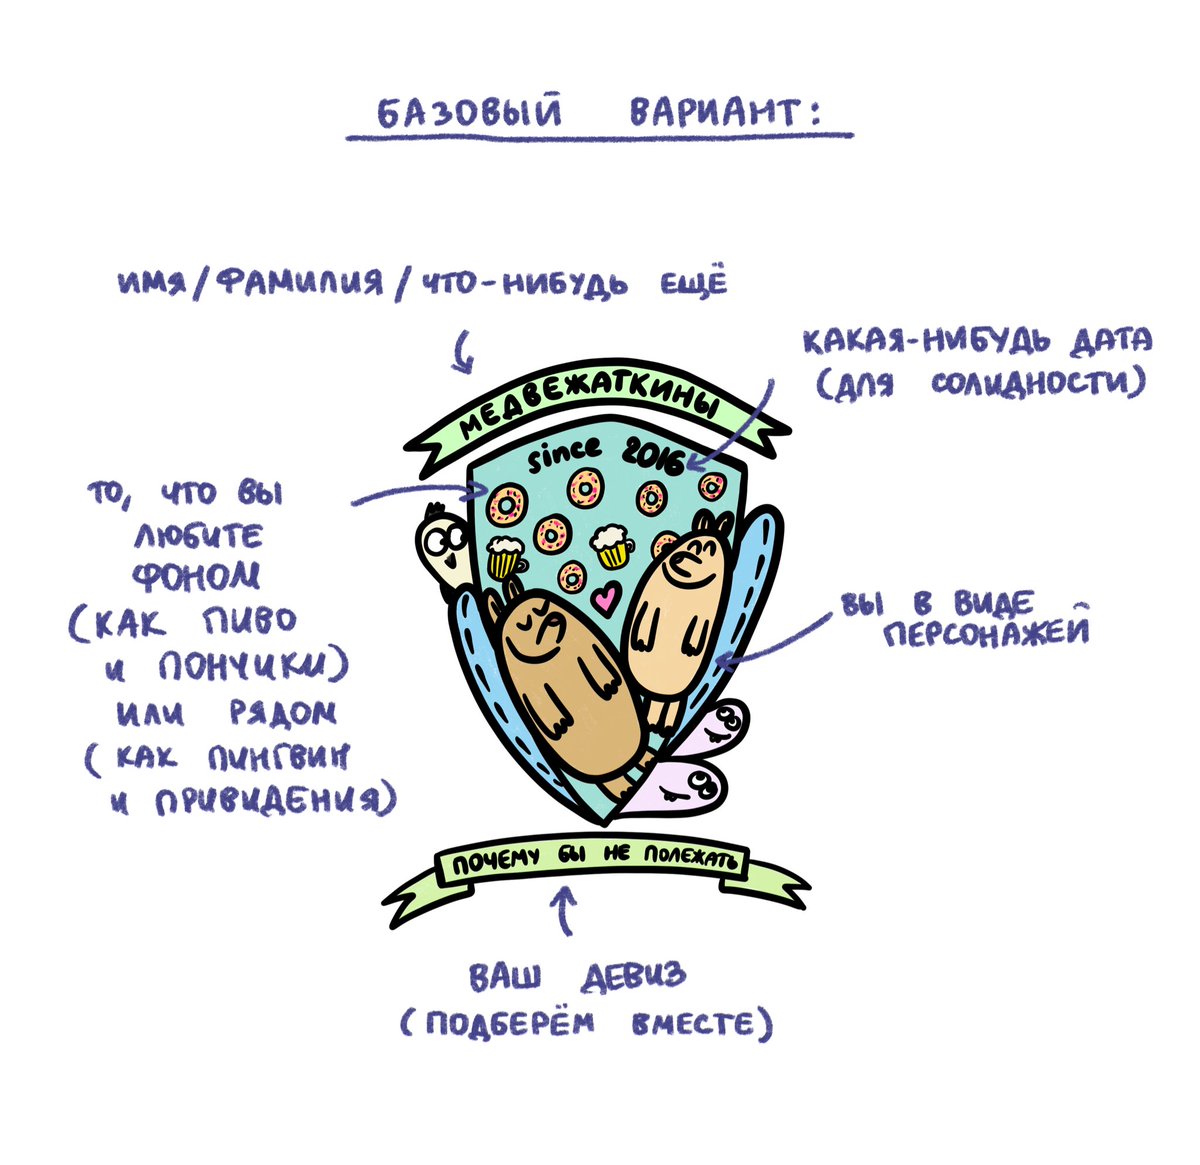 БАЗОВЫЙ ВАРИАНТ:
ИМЯ/ФАМИЛИЯ/ЧТО-НИБУДЬ ЕЩЁ
КАКАЯ-НИБУДЬ ДАТА
(ДЛЯ СОЛИДНОСТИ)
МЕДВЕЖАТКИНЫ
since 2016
ТО, ЧТО ВЫ
ЛЮБИТЕ
ФОНОМ
(КАК ПИВО
И ПОНЧИКИ)
ИЛИ РЯДОМ
(КАК ПИНГВИН
И ПРИВИДЕНИЯ)
ВЫ В ВИДЕ
ПЕРСОНАЖЕЙ
ПОЧЕМУ БЫ НЕ ПОЛЕЖАТЬ
ВАШ ДЕВИЗ
(ПОДБЕРЁМ ВМЕСТЕ)